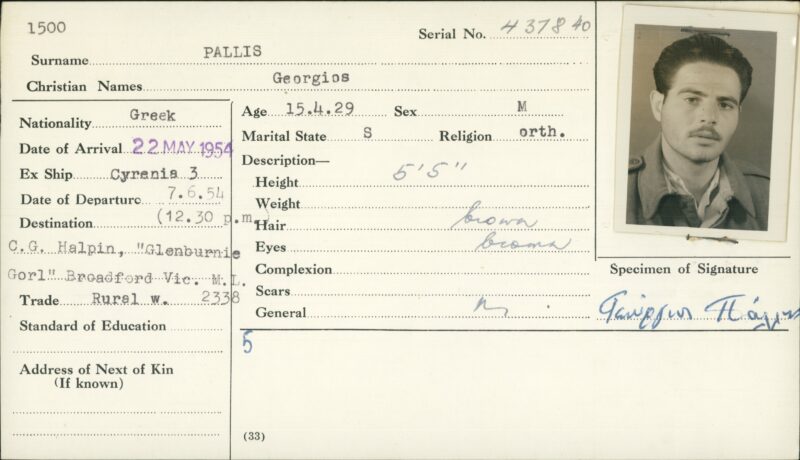 1500
Serial No. 437840
Surname PALLIS
Christian Names Georgios
Nationality Greek
Date of Arrival 22 MAY 1954
Ex Ship Cyrenia 3
Date of Departure 7.6.54
(12.30 p.m.)
Destination
C.G. Halpin, "Glenburnie
Gorl" Broadford Vic. M.L.
Trade Rural w. 2338
Standard of Education
Address of Next of Kin
(If known)
Age 15.4.29 Sex M
Marital State S Religion orth.
Description—
Height 5'5"
Weight
Hair brown
Eyes brown
Complexion
Scars
General
5
(33)
Specimen of Signature
Γεώργιος Πάλλης